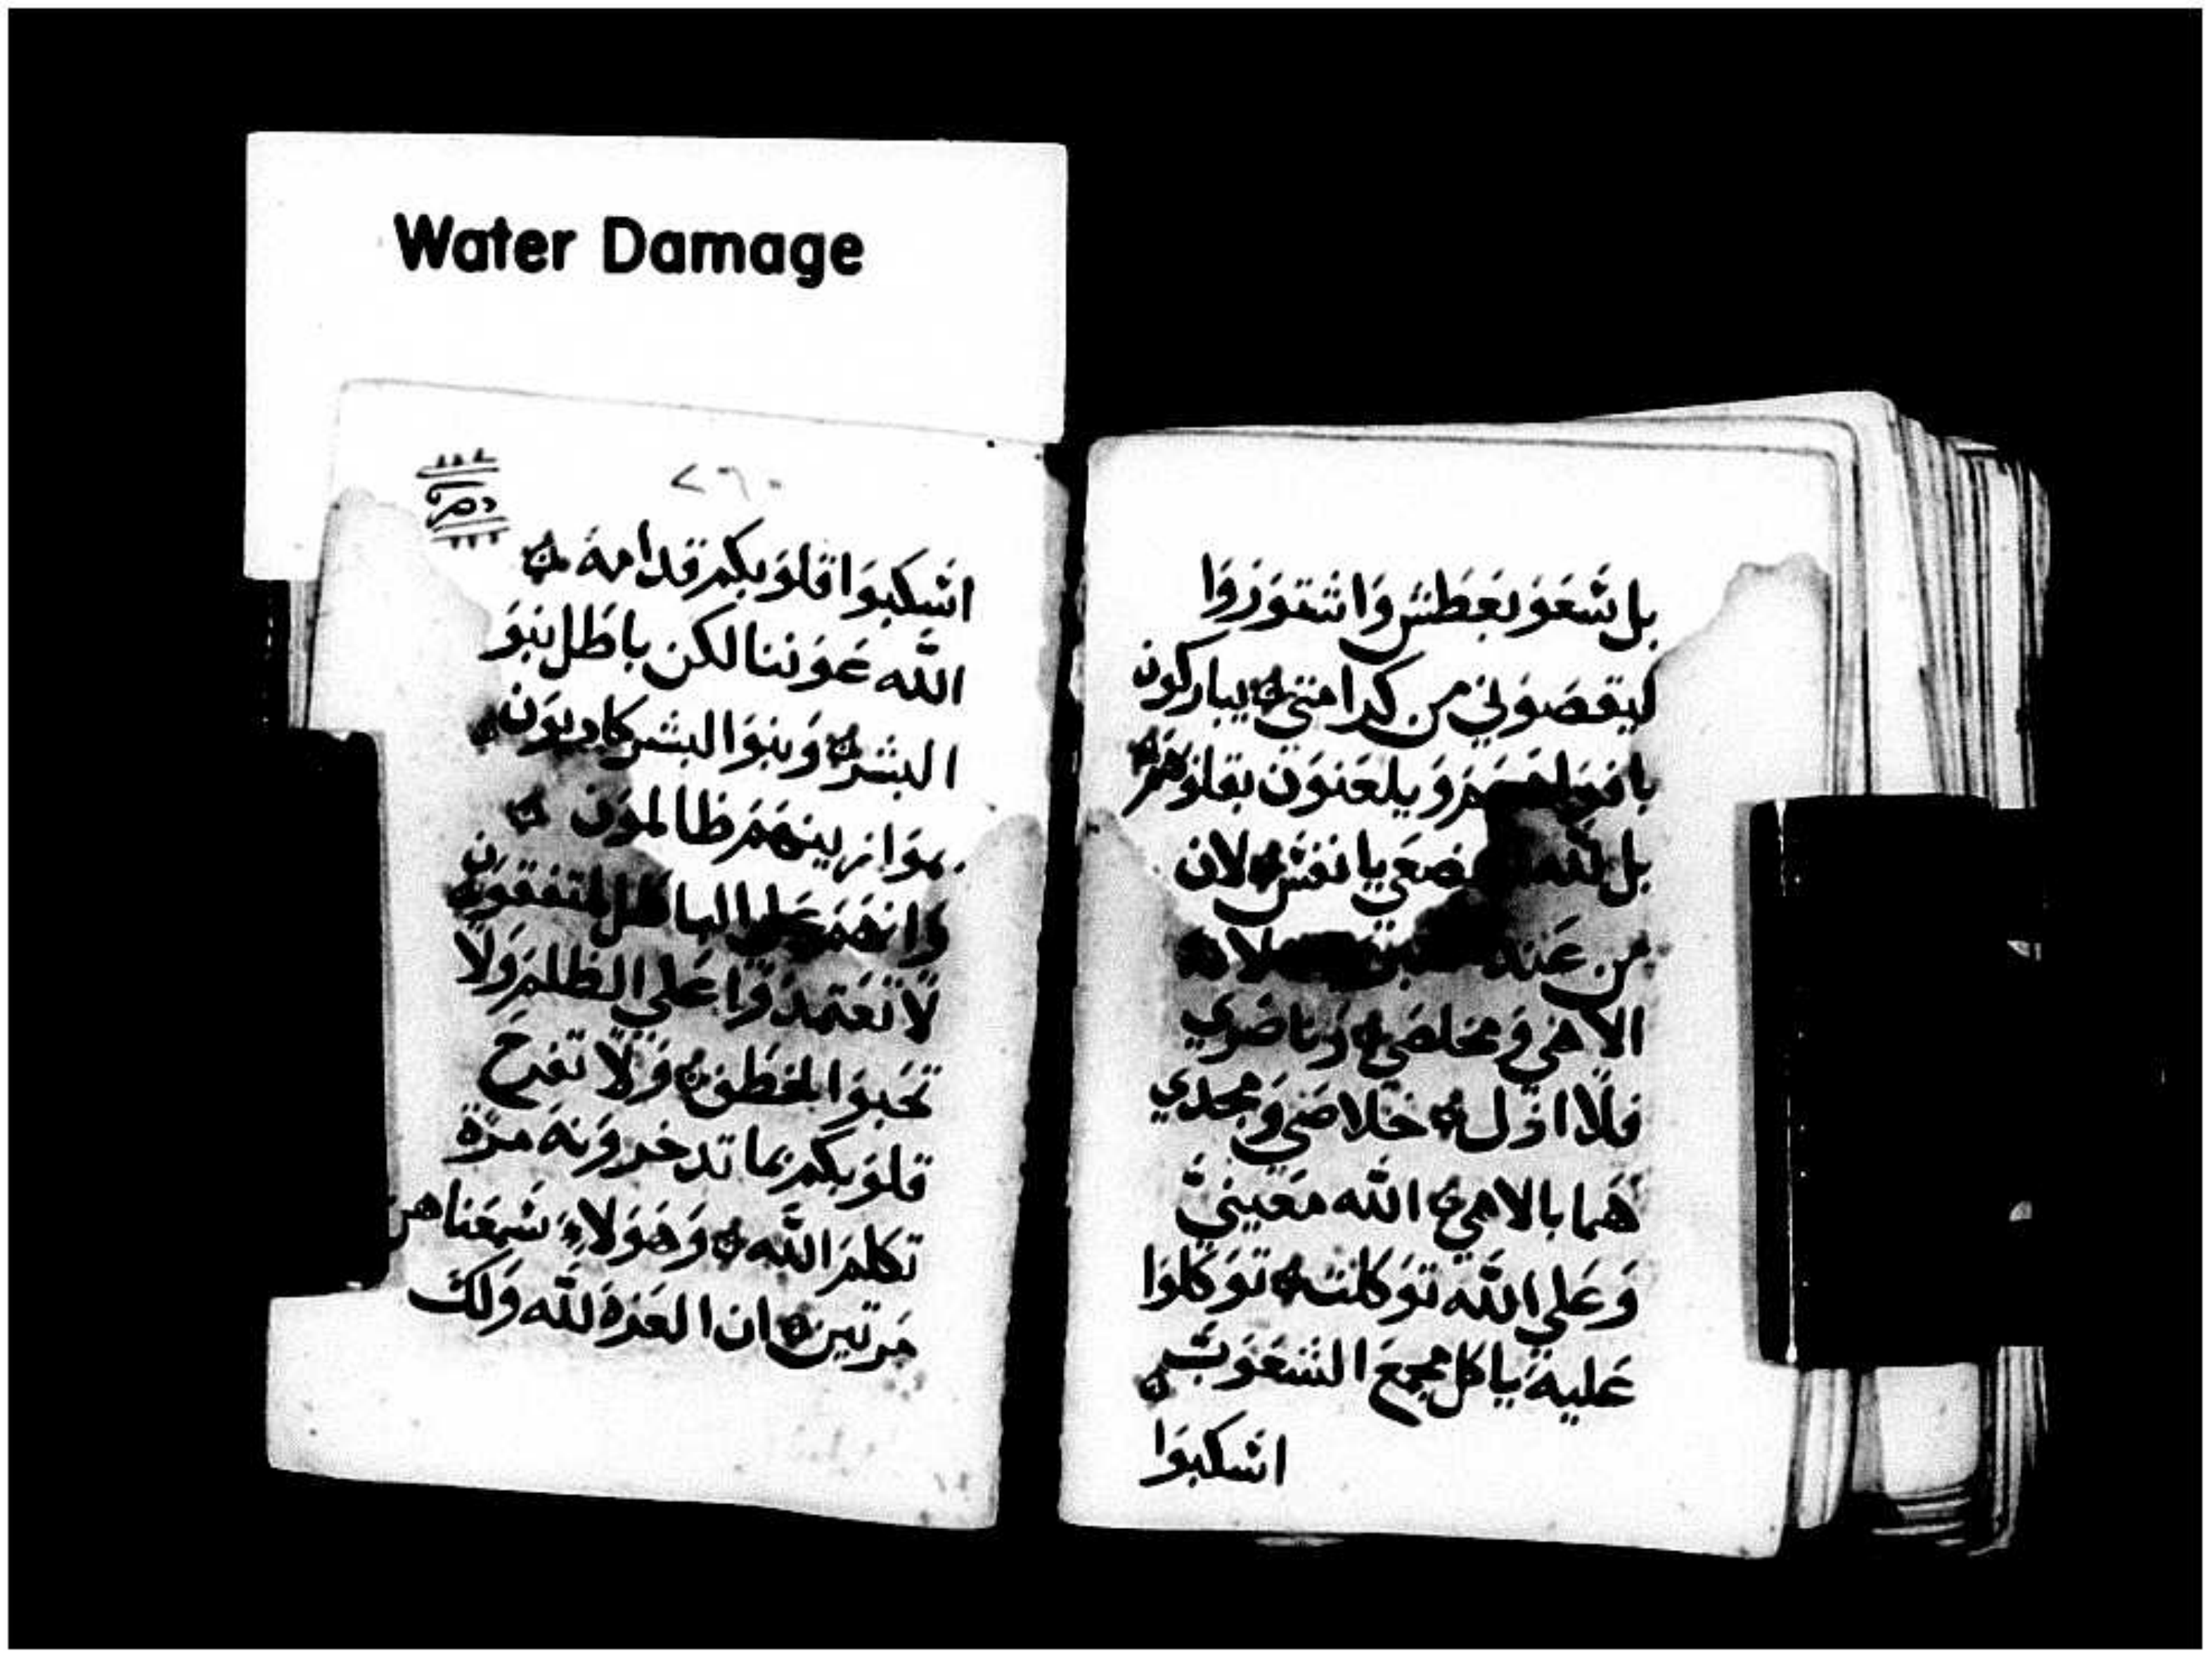 Water Damage
بل شعو بعطش وانتقوزوا
ليقصوني من كرامتي يباركون
ويلعنون بقلوبهم
بل لله يا نفس لان
من عند
الاهي ومخلصي وناصري
فلا ازل خلاصي ومجدي
هما بالاهي الله معيني
وعلي الله توكلت توكلوا
عليه يا كل مجمع الشعوب
اسكبوا
٢٦٠
اسكبوا قلوبكم قدامه
الله عوننا لكن باطل بنو
البشر وبنوا البشر كاذبون
بموازينهم ظالمون
وانهم الباطل متفقون
لا تعتمدوا علي الظلم ولا
تحبوا الخطف ولا تفرح
قلوبكم بما تدخرونه مرة
تكلم الله وهولاء سمعناهن
مرتين ان العزة لله ولك